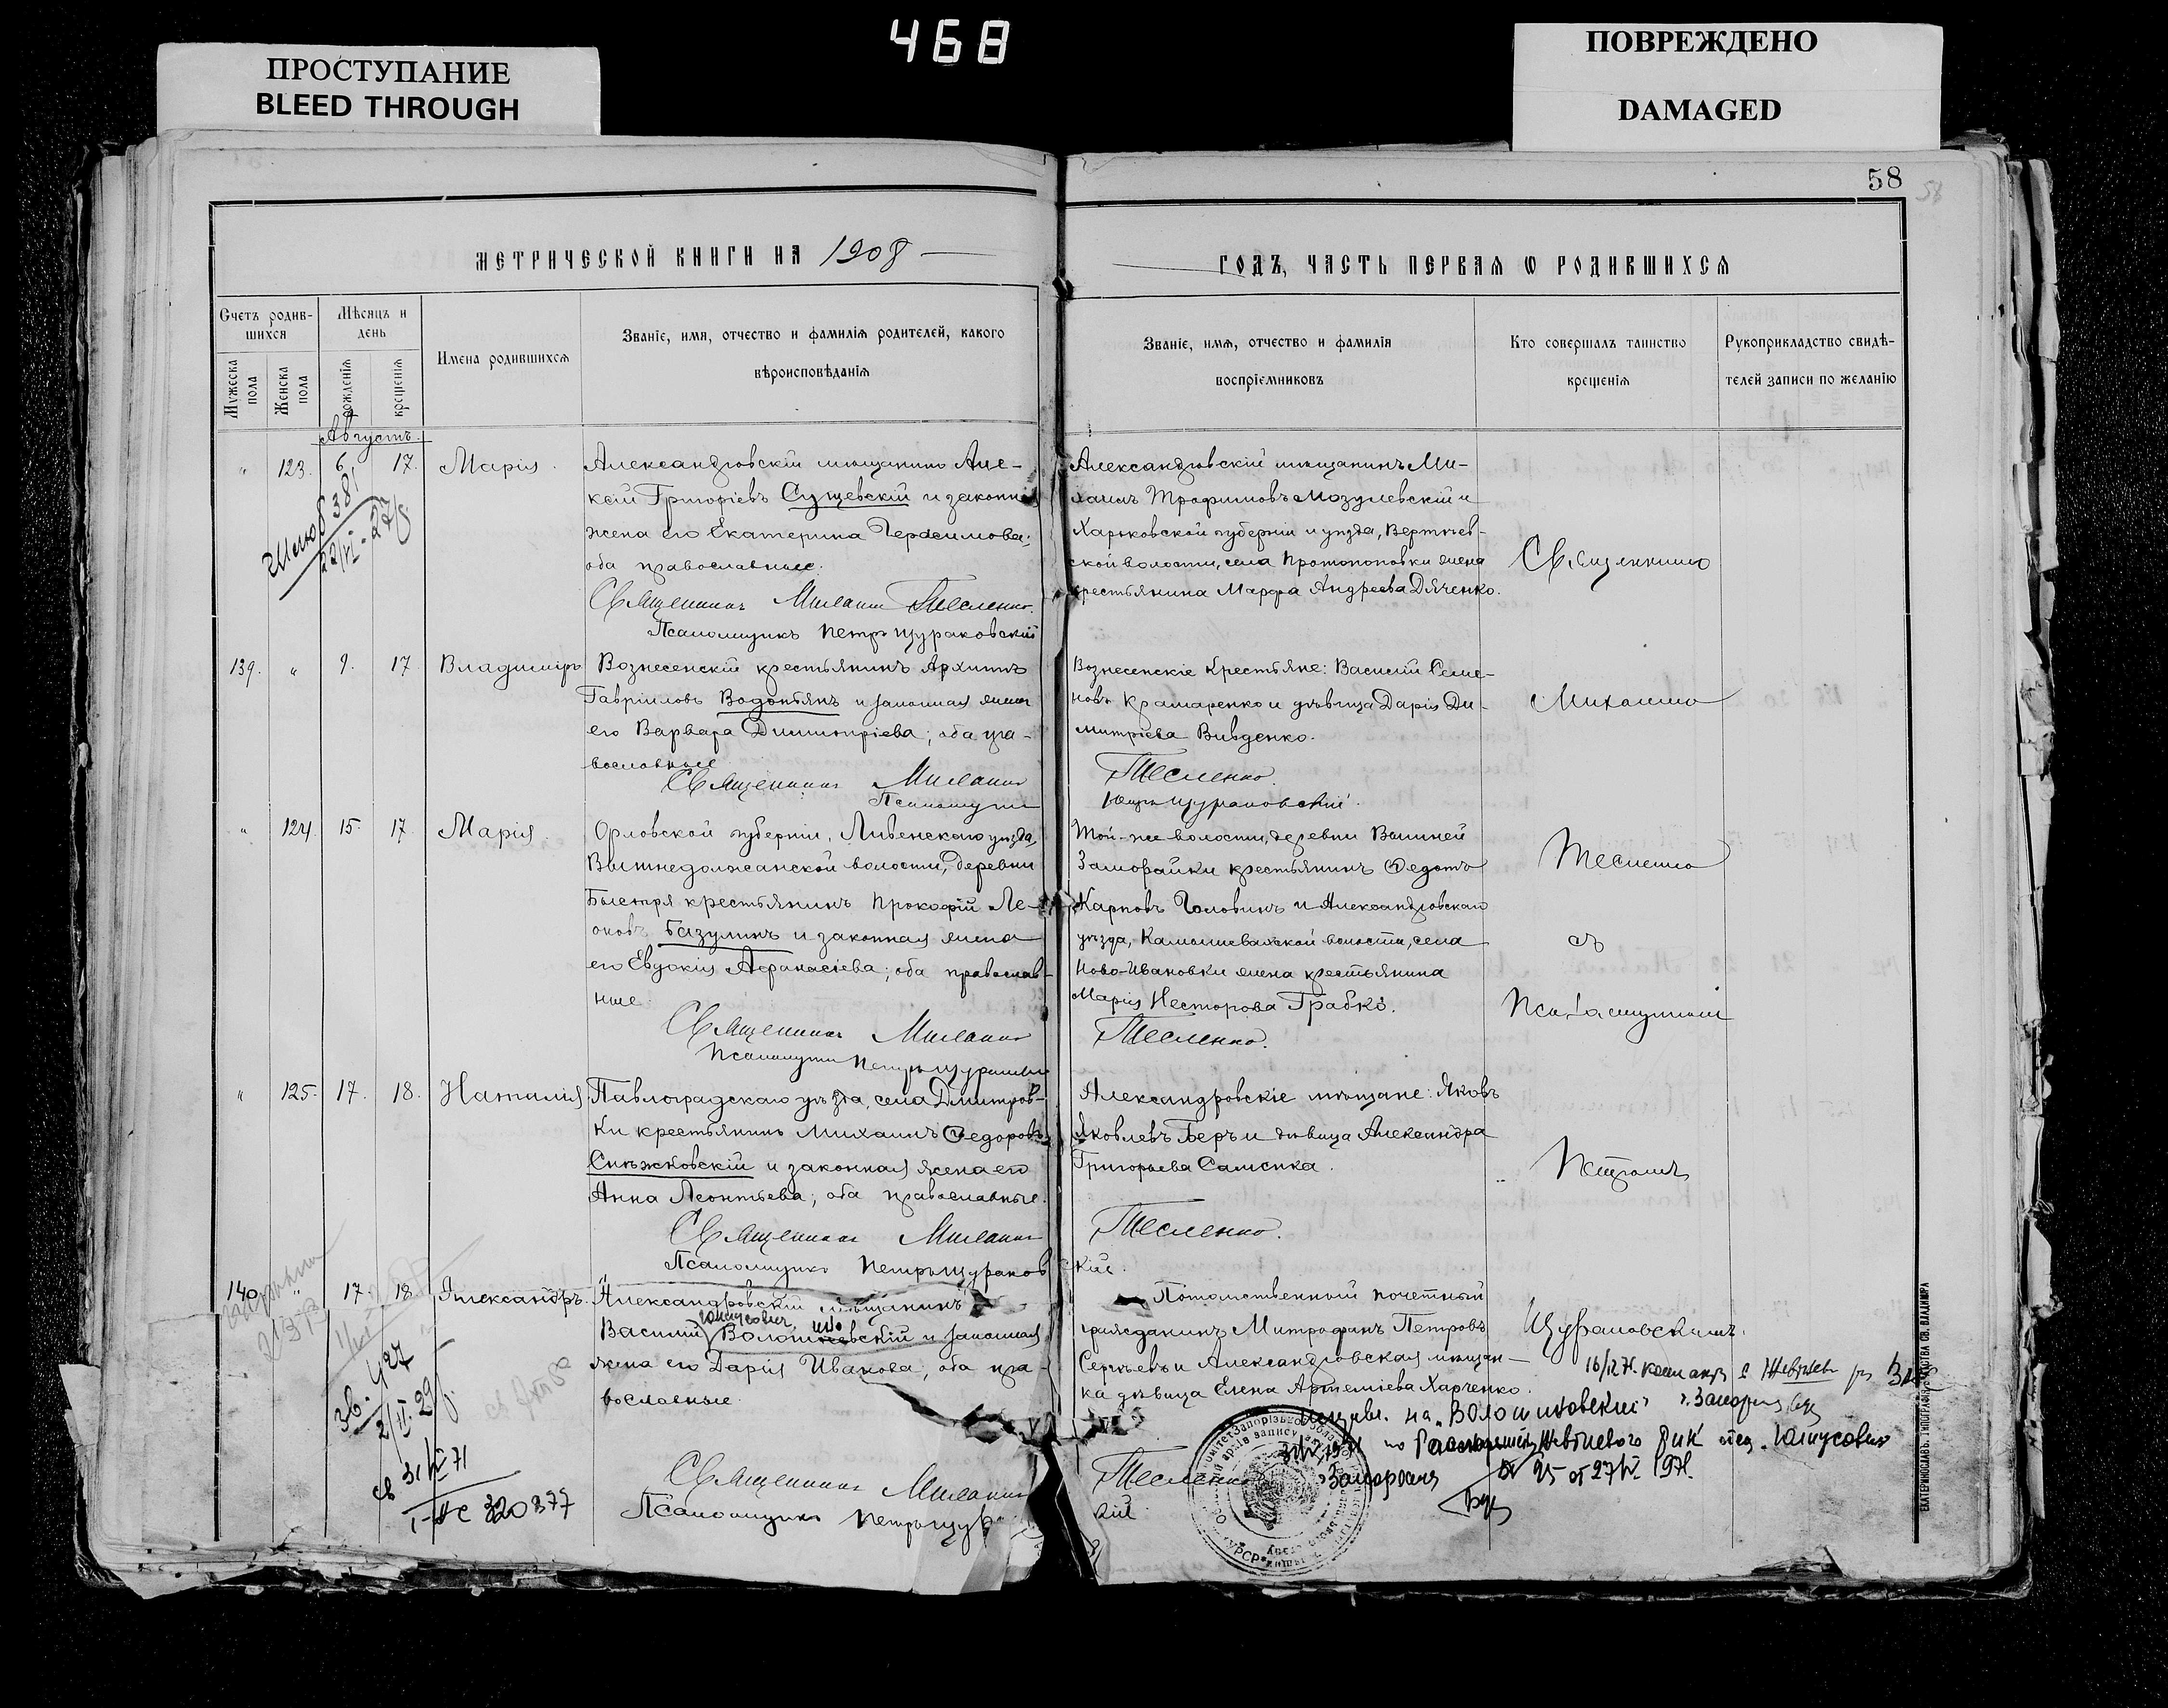 468
ПРОСТУПАНИЕ
BLEED THROUGH
ПОВРЕЖДЕНО
DAMAGED
58
МЕТРИЧЕСКОЙ КНИГИ НА 1908
ГОДЪ, ЧАСТЬ ПЕРВАЯ Ѡ РОДИВШИХСЯ
Счетъ родив-
шихся
Мѣсяцъ и
день
Имена родившихся
Званіе, имя, отчество и фамилія родителей, какого
вѣроисповѣданія
Мужеска
пола
Женска
пола
рожденія
крещенія
Званіе, имя, отчество и фамилія
воспріемниковъ
Кто совершалъ таинство
крещенія
Рукоприкладство свидѣ-
телей записи по желанію
Августъ
" 123. 6 17. Марія.
Александровскій мѣщанинъ Але-
ксѣй Григоріевъ Сущевскій и законная
жена его Екатерина Герасимова;
оба православные.
Священникъ Михаилъ Тесленко.
Псаломщикъ Петръ Щураковскій
Александровскій мѣщанинъ Ми-
хаилъ Трофимовъ Мозулевскій и
Харьковской губерніи и уѣзда,
ской волости, села Протопоповки жена
крестьянина Марфа Андреева Дяченко.
Священникъ
22/VI - 27 г.
139. " 9. 17. Владиміръ
Вознесенскій крестьянинъ Архипъ
Гавріиловъ Водопьянъ и законная жена
его Варвара Димитріева; оба пра-
вославные
Священникъ Михаилъ
Псаломщикъ
Вознесенскіе крестьяне: Василій Семе-
новъ Крамаренко и дѣвица Дарія Ди-
митріева Вивденко.
Тесленко.
Петръ Щураковскій.
Михаилъ
" 124. 15. 17. Марія.
Орловской губерніи, Ливенскаго уѣзда,
Вышнедолжанской волости, деревни
Быстря крестьянинъ Прокофій Ле-
оновъ Базулинъ и законная жена
его Евдокія Афанасіева; оба православ-
ные.
Священникъ Михаилъ
Псаломщикъ Петръ
Той-же волости, деревни
крестьянинъ Ѳедотъ
Карповъ Головинъ и Александровскаго
уѣзда, Камышевахской волости, села
Ново-Ивановки жена крестьянина
Марія Несторова Грабко.
Тесленко.
Тесленко
съ
Псаломщикомъ
" 125. 17. 18. Наталія
Павлоградскаго уѣзда, села Дмитров-
ки крестьянинъ Михаилъ Ѳедоровъ
Снѣжковскій и законная жена его
Анна Леонтьева; оба православные.
Священникъ Михаилъ
Псаломщикъ Петръ Щураков
Александровскіе мѣщане: Яковъ
Яковлевъ Беръ и дѣвица Александра
Григорьева Саменка.
Тесленко.
скій.
Петромъ
140. " 17. 18. Александръ.
Александровскій мѣщанинъ
Василій Волошиновскій и законная
жена его Дарія Иванова; оба пра-
вославные.
Священникъ Михаилъ
Псаломщикъ Петръ Щур
Потомственный почетный
гражданинъ Митрофанъ Петровъ
Сергѣевъ и Александровская мѣщан-
ка дѣвица Елена Артеміева Харченко.
Тесленко
кій
Щураковскимъ.
на "Волошиновский"
25 от 27/IV 1971.
2/II 29 г.
св 31/IV 71
I-ЖС 320377
ЕКАТЕРИНОСЛАВЪ. ТИПОГРАФІЯ БРАТСТВА СВ. ВЛАДИМІРА